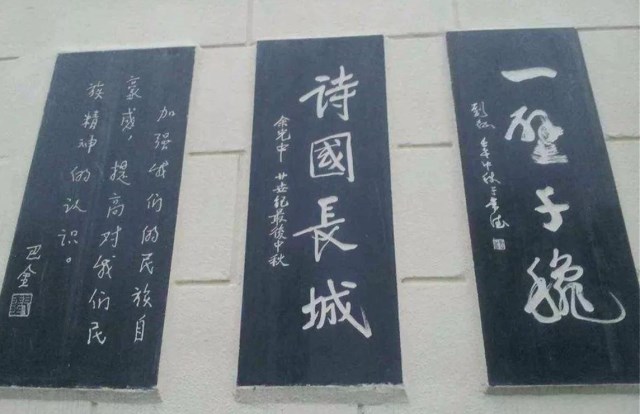 加强我们的民族自
豪感，提高对我们民
族精神的认识。
巴金
诗國長城
余光中 廿世紀最後中秋
一壁千穐
刘征